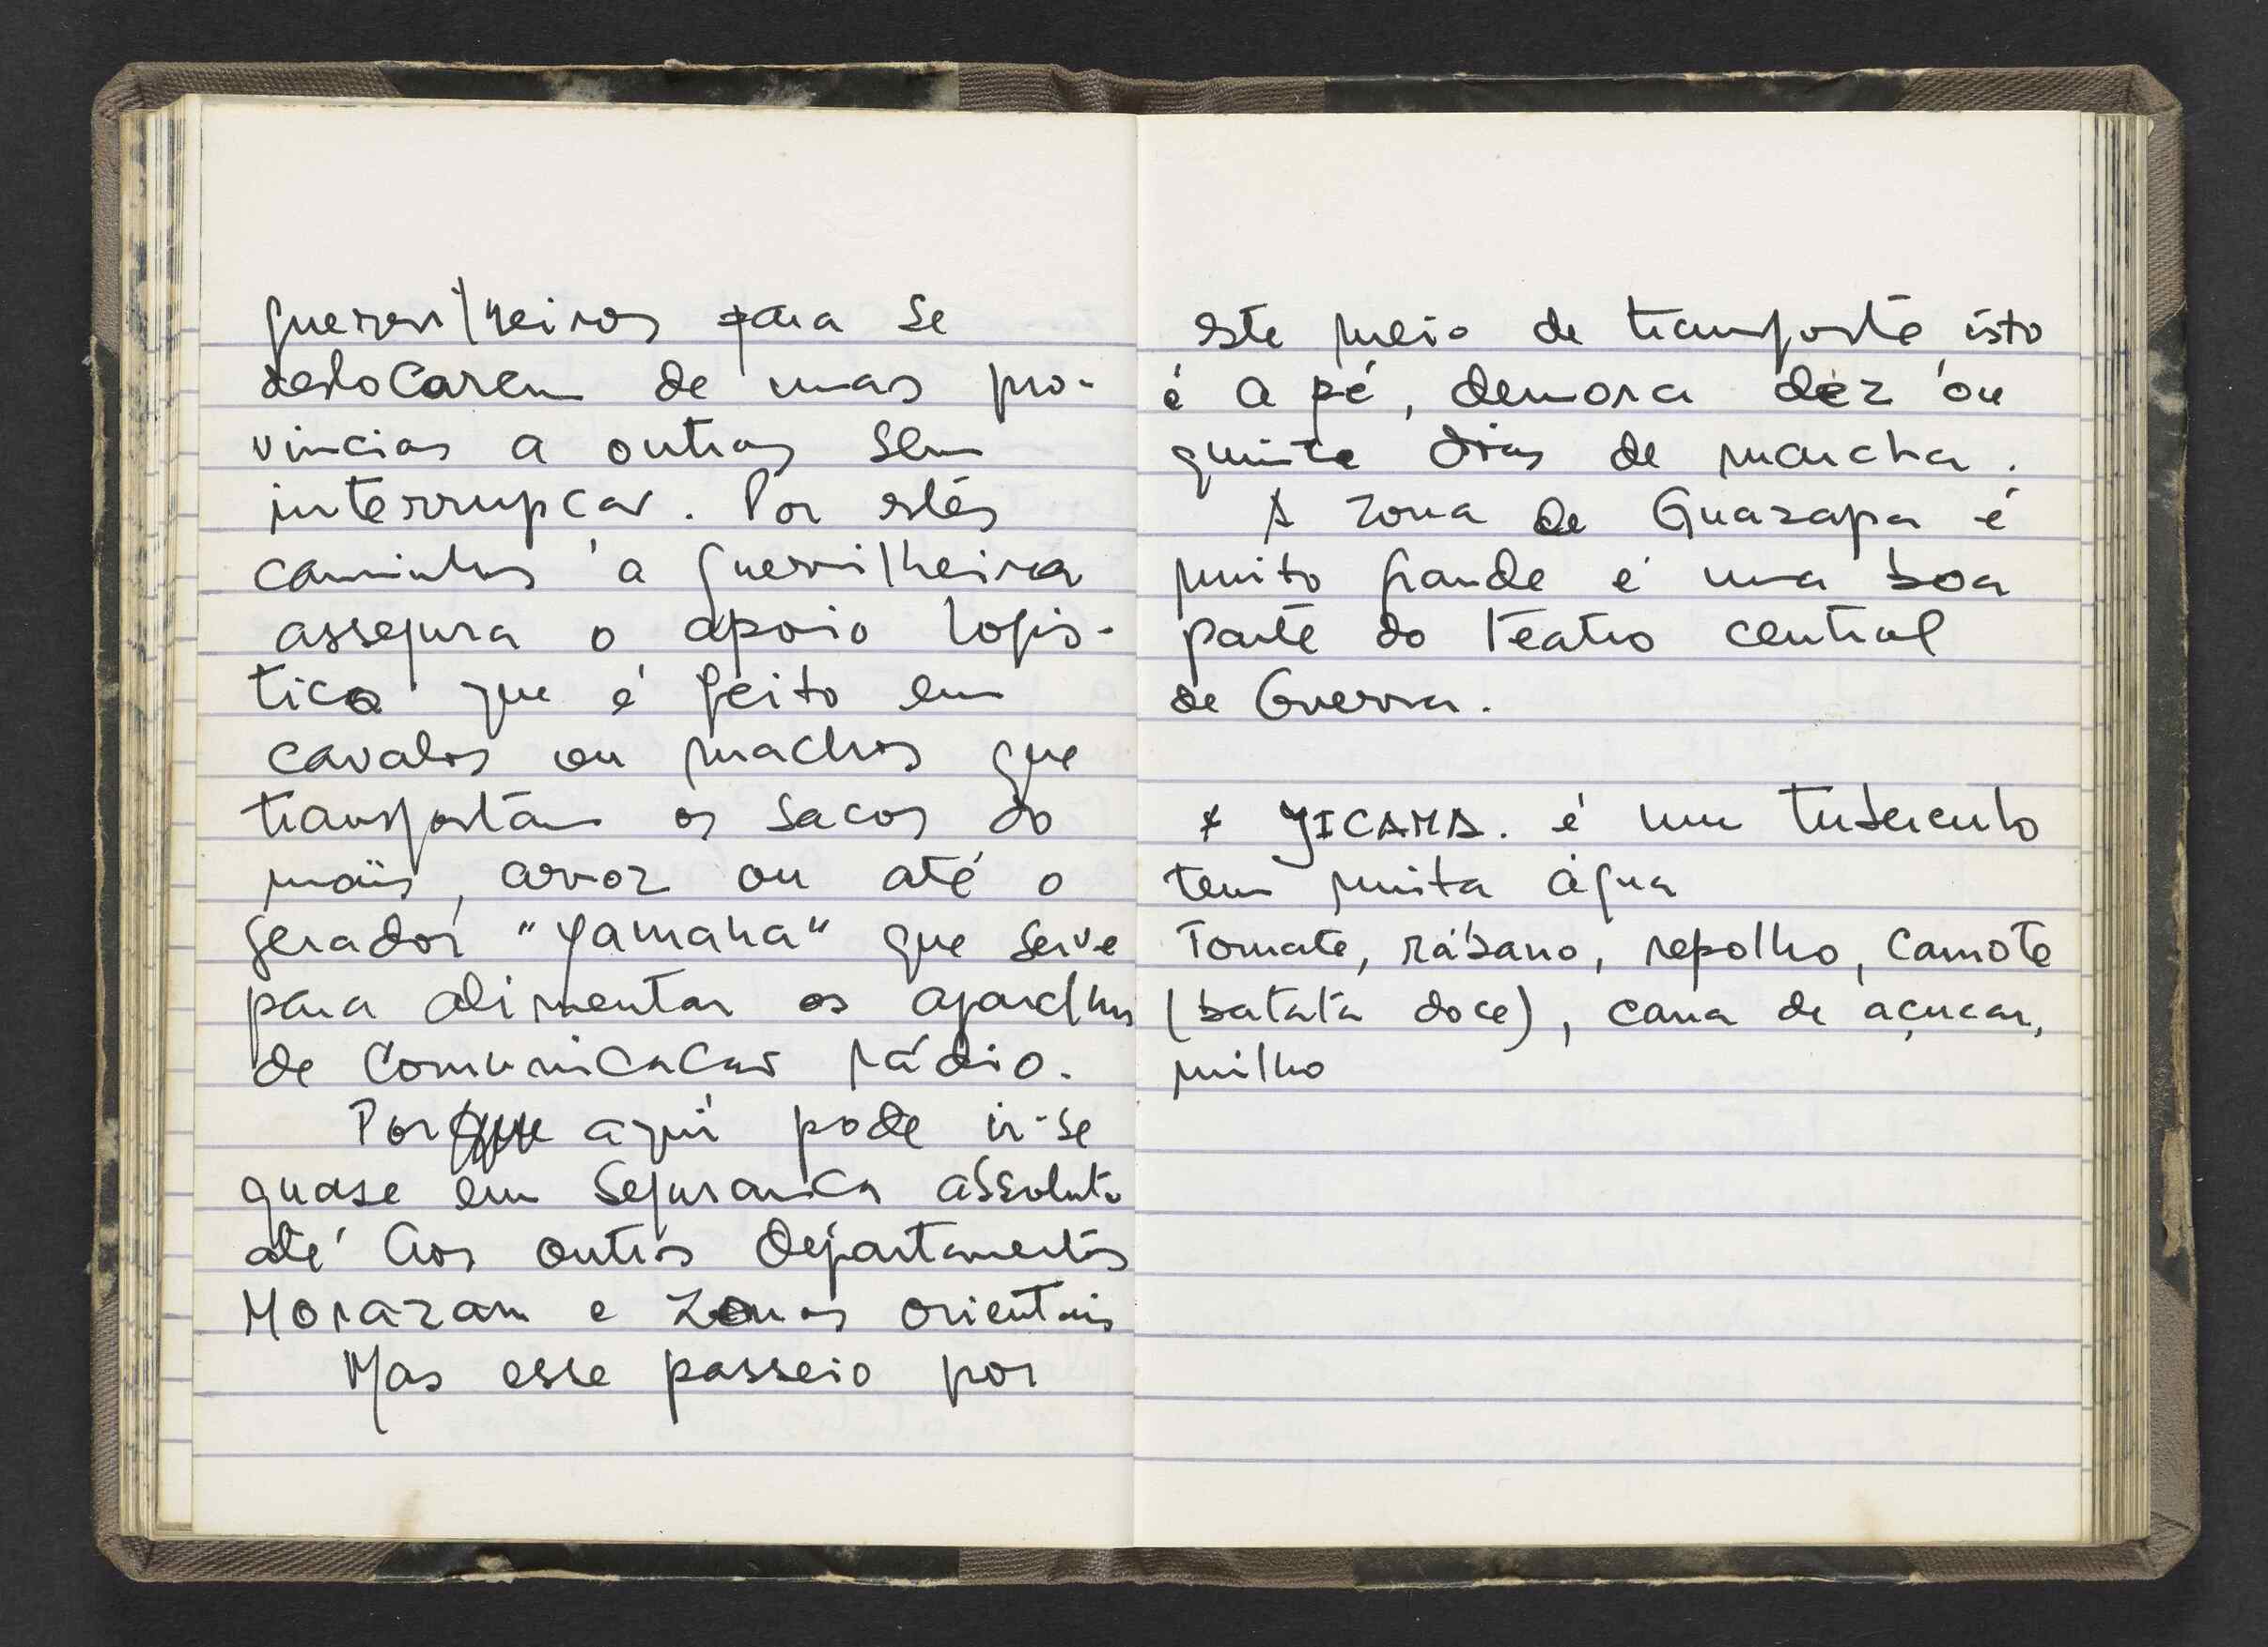 guerrilheiros para se
deslocarem de umas pro-
vincias a outras sem
interrupcao. Por estes
caminhos a guerrilheira
assegura o apoio logis-
tico que é feito em
cavalos ou machos que
transportam os sacos do
maïs, arroz ou até o
gerador "Yamaha" que serve
para alimentar os aparelhos
de comunicacao rádio.
Por aqui pode ir-se
quase em seguranca absoluta
até aos outros départamentos
Morazan e zonas orientais
Mas esse passeio por
este meio de transporte isto
é a pé, demora dez ou
quinze dias de marcha.
A zona de Guazapa é
muito grande é uma boa
parte do Teatro central
de Guerra.
* JICAMA. é um tuberculo
tem muita àgua
Tomate, rábano, repolho, camote
(batata doce), cana de açucar,
milho